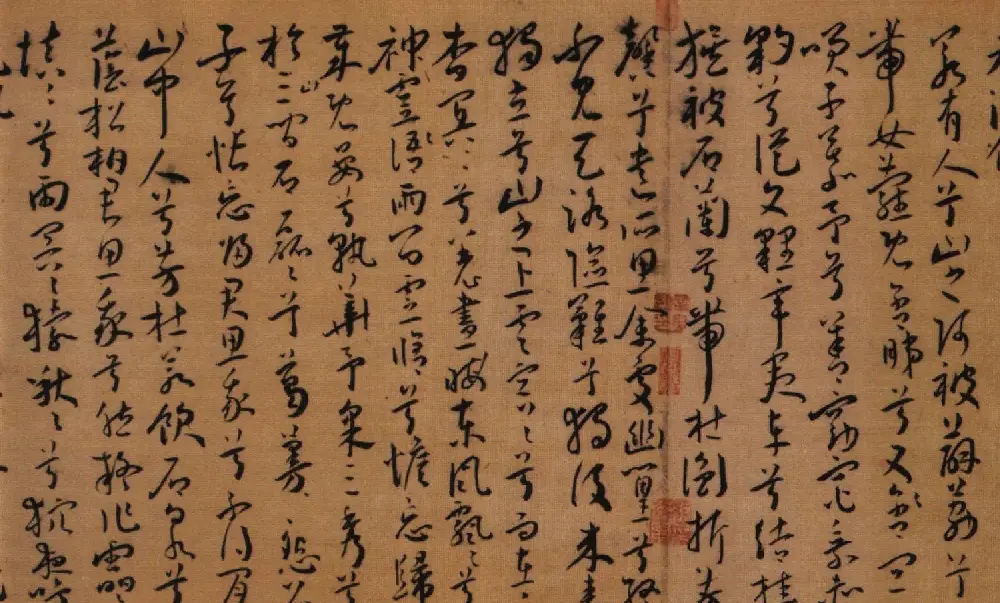 若有人兮山之阿被薜荔兮
帶女蘿既含睇兮又宜
笑子慕予兮善窈窕乘赤
豹兮從文貍辛夷車兮結桂
旗被石蘭兮帶杜衡折芳
馨兮遺所思余處幽篁兮終
不見天路險難兮獨後來表
獨立兮山之上雲容容兮而在
杳冥冥兮羌晝晦東風飄飄兮
神靈雨留靈脩兮憺忘歸
歲既晏兮孰華予采三秀兮
於山間石磊磊兮葛蔓蔓怨公
子兮悵忘歸君思我兮不得閒
山中人兮芳杜若飲石泉兮
蔭松柏君思我兮然疑作雷
填填兮雨冥冥猿啾啾兮狖夜鳴